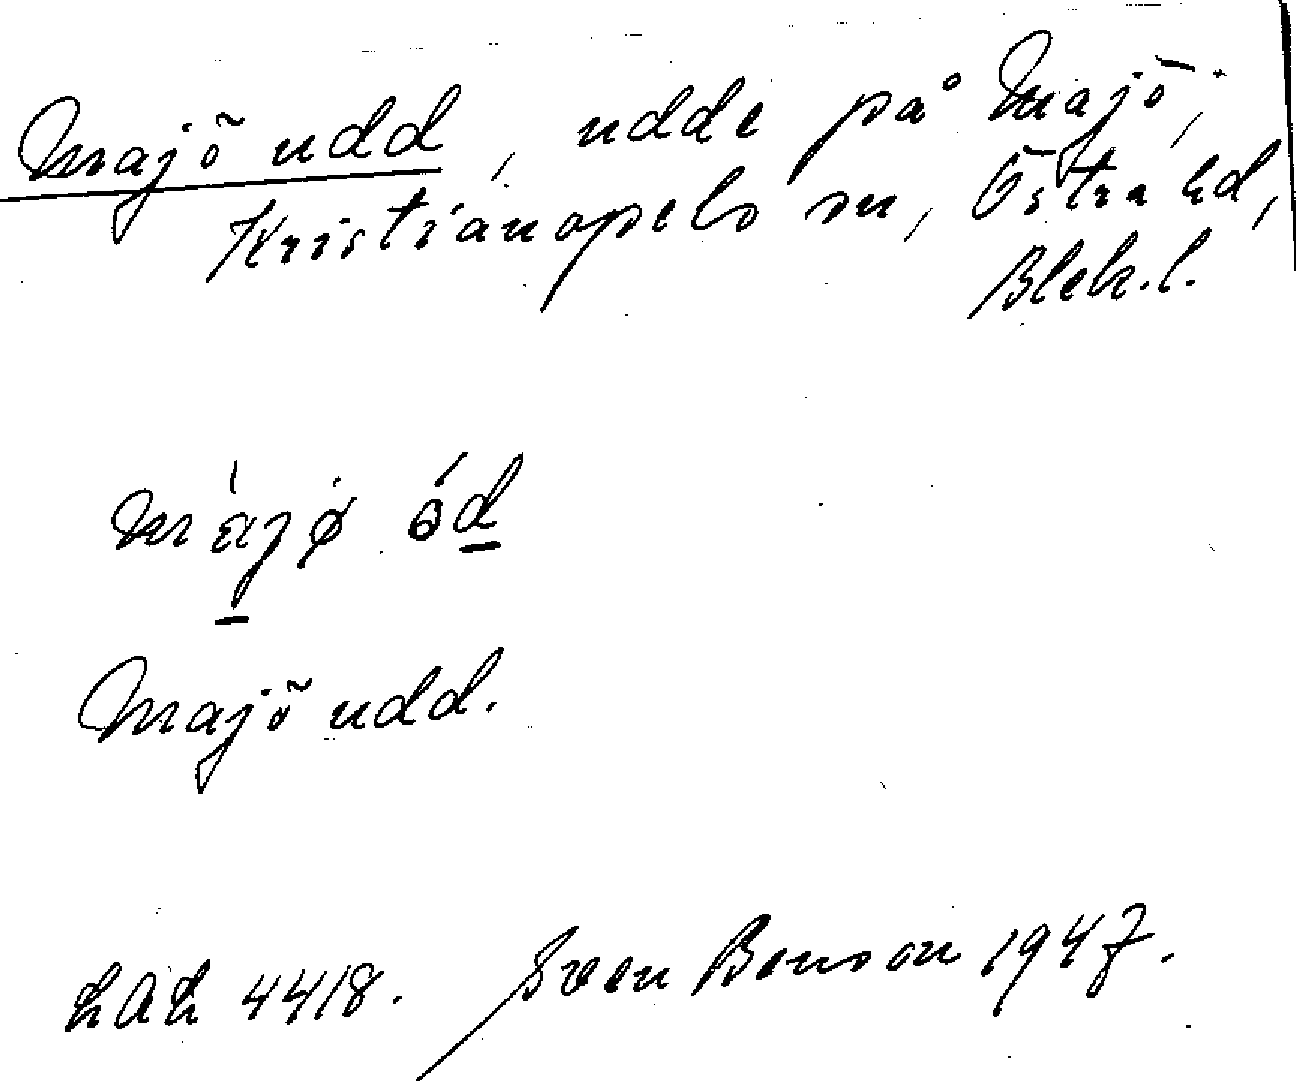 Majö udd, udde på Majö,
Kristianopels sn, Östra hd,
Blek. l.
májø ód
Majö udd.
LAL 4418. Sven Benson 1947.